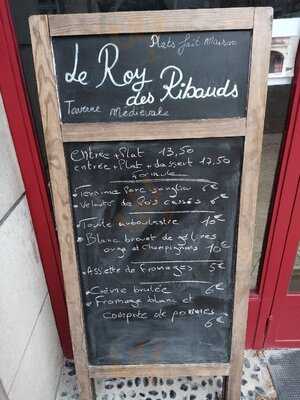 Plats fait Maison
Le Roy
des Ribauds
Taverne Médiévale
entrée + Plat 13,50
entrée + Plat + dessert 17,50
formule
Terrine Porc sanglier 6€
Velouté de Pois cassés 6€
Tourte ambulastre 10€
Blanc brouet de gélines
orge et champignons 10€
Assiette de fromages 5€
Crème brulée 6€
Fromage blanc et
compote de pommes
6€